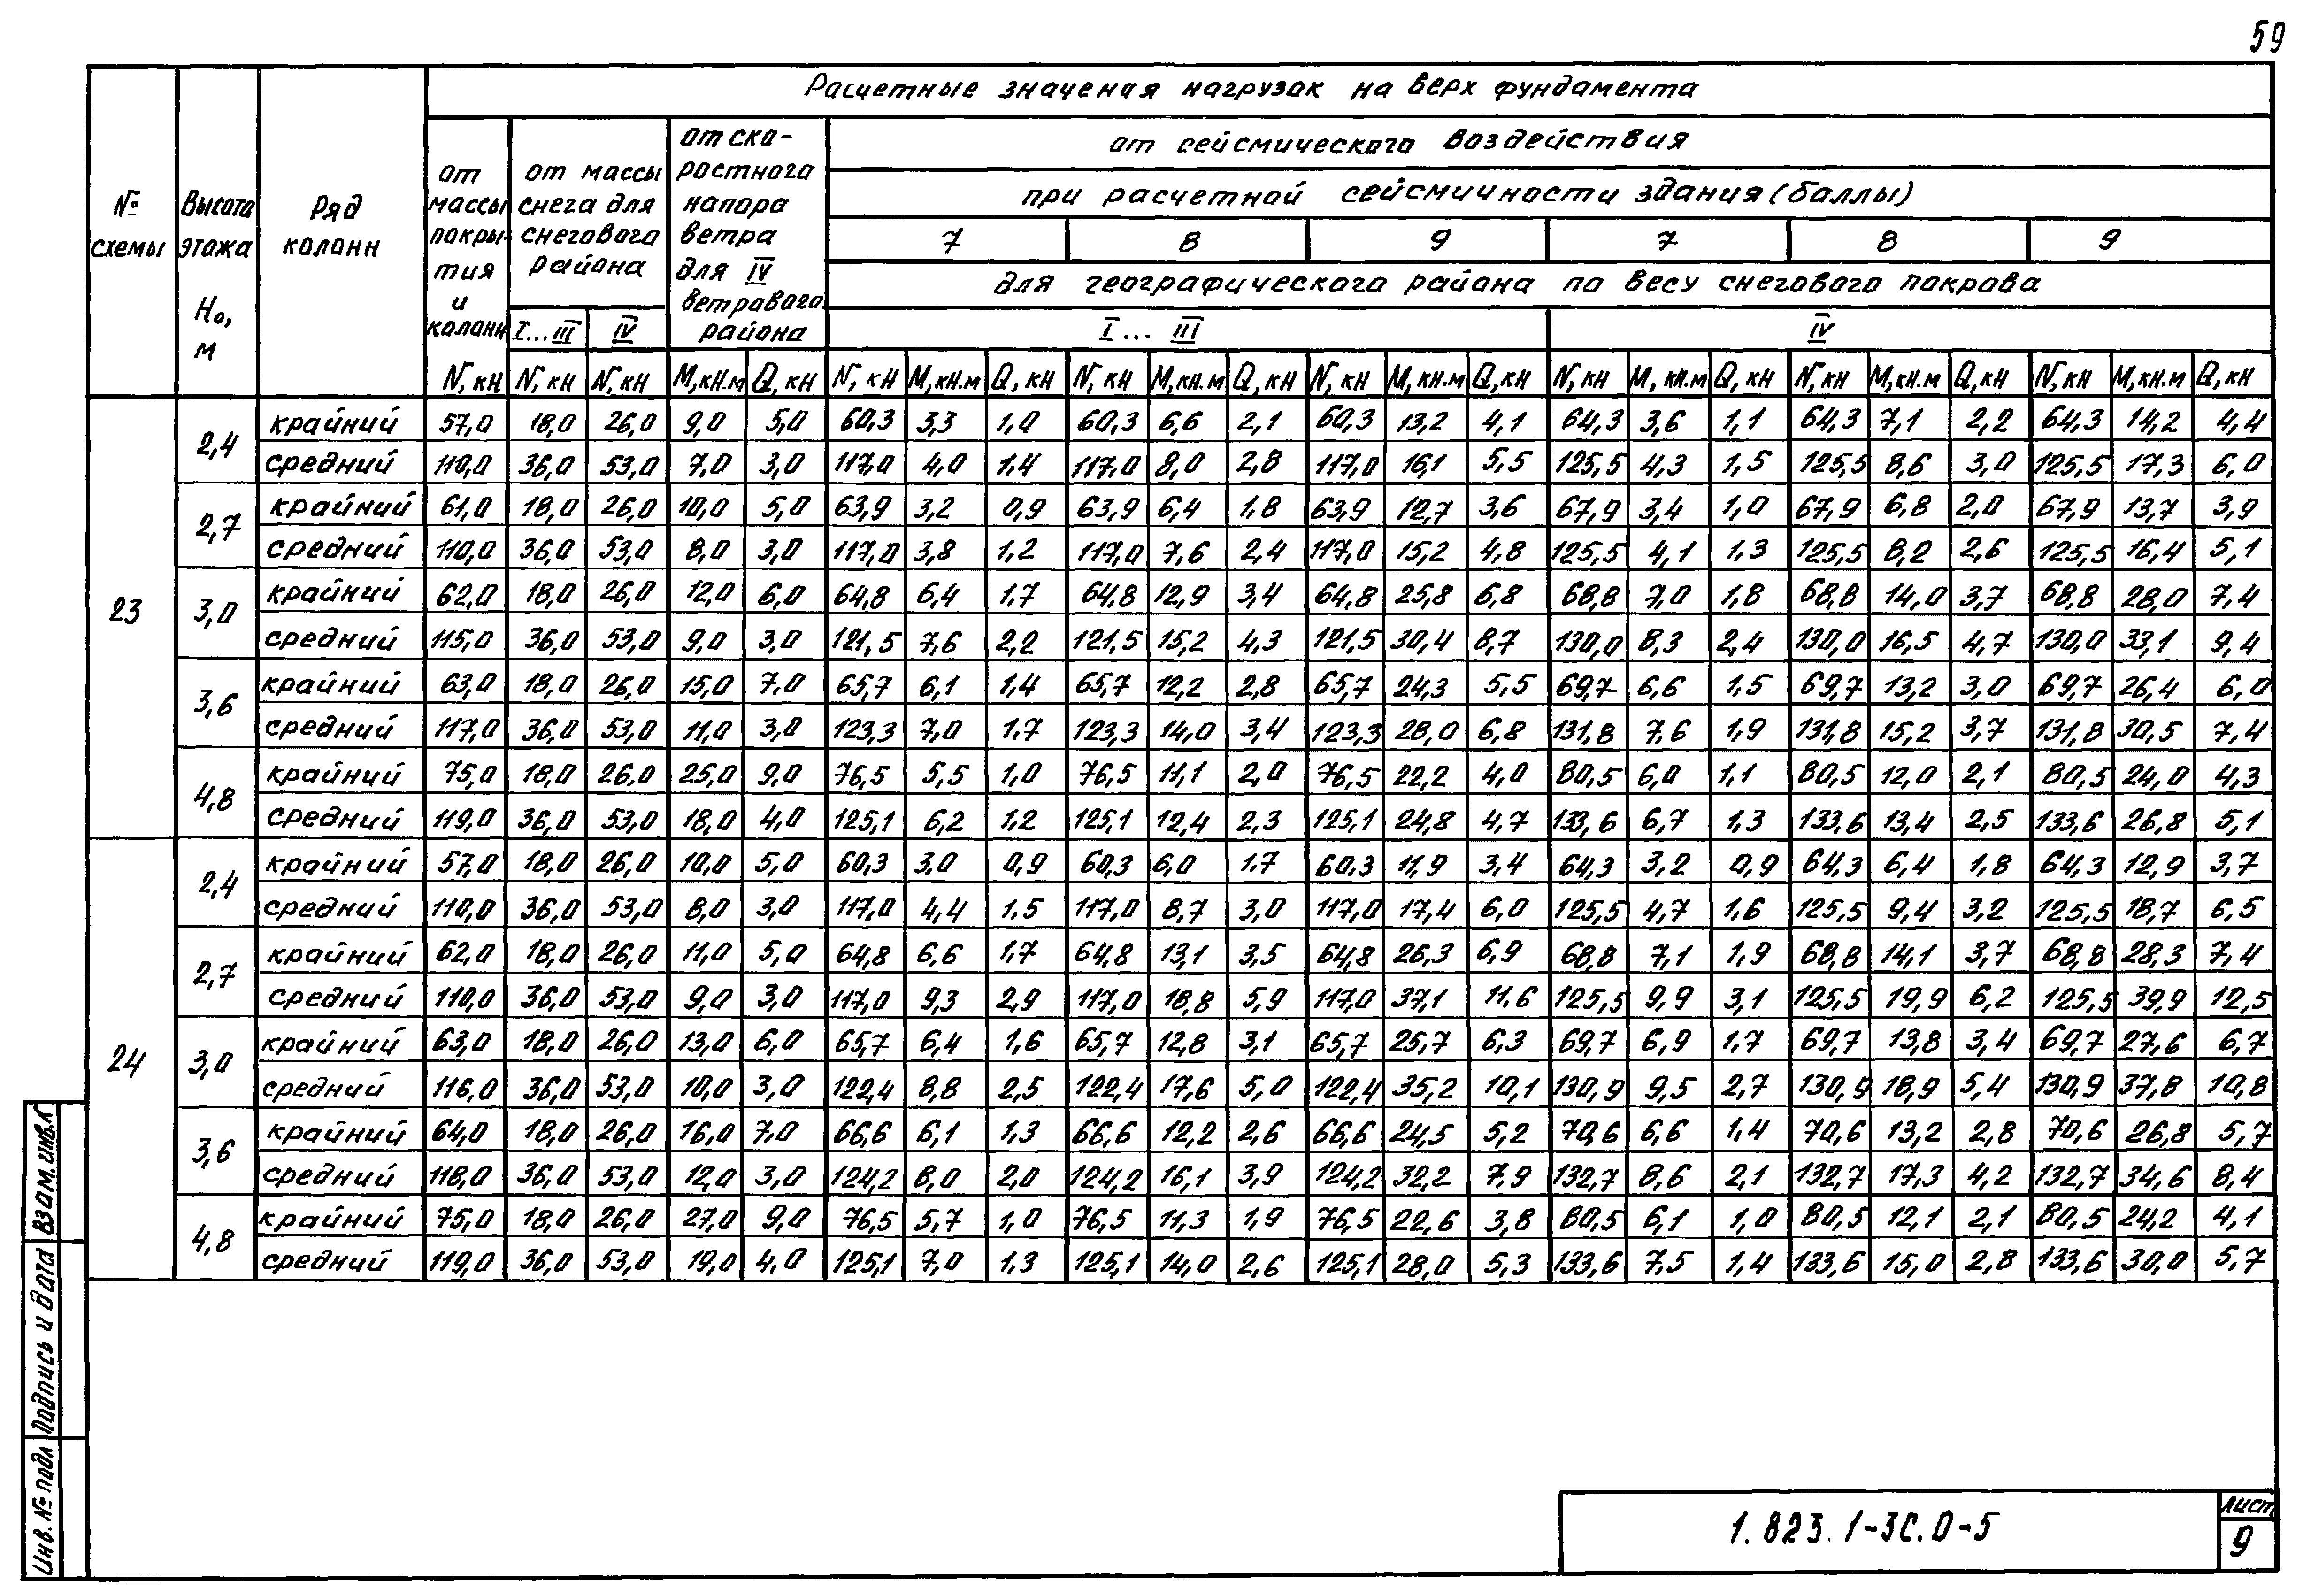 59
Расчетные значения нагрузок на верх фундамента
№ схемы
Высота этажа Н₀, м
Ряд колонн
от массы покрытия и колонн
от массы снега для снегового района
от скоростного напора ветра для IV ветрового района
от сейсмического воздействия
при расчетной сейсмичности здания (баллы)
7 8 9 7 8 9
для географического района по весу снегового покрова
I...III IV I...III IV
N, кН N, кН N, кН М, кН.м Q, кН N, кН М, кН.м Q, кН N, кН М, кН.м Q, кН N, кН М, кН.м Q, кН N, кН М, кН.м Q, кН N, кН М, кН.м Q, кН N, кН М, кН.м Q, кН
23
2,4 крайний 57,0 18,0 26,0 9,0 5,0 60,3 3,3 1,0 60,3 6,6 2,1 60,3 13,2 4,1 64,3 3,6 1,1 64,3 7,1 2,2 64,3 14,2 4,4
средний 110,0 36,0 53,0 7,0 3,0 117,0 4,0 1,4 117,0 8,0 2,8 117,0 16,1 5,5 125,5 4,3 1,5 125,5 8,6 3,0 125,5 17,3 6,0
2,7 крайний 61,0 18,0 26,0 10,0 5,0 63,9 3,2 0,9 63,9 6,4 1,8 63,9 12,7 3,6 67,9 3,4 1,0 67,9 6,8 2,0 67,9 13,7 3,9
средний 110,0 36,0 53,0 8,0 3,0 117,0 3,8 1,2 117,0 7,6 2,4 117,0 15,2 4,8 125,5 4,1 1,3 125,5 8,2 2,6 125,5 16,4 5,1
3,0 крайний 62,0 18,0 26,0 12,0 6,0 64,8 6,4 1,7 64,8 12,9 3,4 64,8 25,8 6,8 68,8 7,0 1,8 68,8 14,0 3,7 68,8 28,0 7,4
средний 115,0 36,0 53,0 9,0 3,0 121,5 7,6 2,2 121,5 15,2 4,3 121,5 30,4 8,7 130,0 8,3 2,4 130,0 16,5 4,7 130,0 33,1 9,4
3,6 крайний 63,0 18,0 26,0 15,0 7,0 65,7 6,1 1,4 65,7 12,2 2,8 65,7 24,3 5,5 69,7 6,6 1,5 69,7 13,2 3,0 69,7 26,4 6,0
средний 117,0 36,0 53,0 11,0 3,0 123,3 7,0 1,7 123,3 14,0 3,4 123,3 28,0 6,8 131,8 7,6 1,9 131,8 15,2 3,7 131,8 30,5 7,4
4,8 крайний 75,0 18,0 26,0 25,0 9,0 76,5 5,5 1,0 76,5 11,1 2,0 76,5 22,2 4,0 80,5 6,0 1,1 80,5 12,0 2,1 80,5 24,0 4,3
средний 119,0 36,0 53,0 18,0 4,0 125,1 6,2 1,2 125,1 12,4 2,3 125,1 24,8 4,7 133,6 6,7 1,3 133,6 13,4 2,5 133,6 26,8 5,1
24
2,4 крайний 57,0 18,0 26,0 10,0 5,0 60,3 3,0 0,9 60,3 6,0 1.7 60,3 11,9 3,4 64,3 3,2 0,9 64,3 6,4 1,8 64,3 12,9 3,7
средний 110,0 36,0 53,0 8,0 3,0 117,0 4,4 1,5 117,0 8,7 3,0 117,0 17,4 6,0 125,5 4,7 1,6 125,5 9,4 3,2 125,5 18,7 6,5
2,7 крайний 62,0 18,0 26,0 11,0 5,0 64,8 6,6 1,7 64,8 13,1 3,5 64,8 26,3 6,9 68,8 7,1 1,9 68,8 14,1 3,7 68,8 28,3 7,4
средний 110,0 36,0 53,0 9,0 3,0 117,0 9,3 2,9 117,0 18,8 5,9 117,0 37,1 11.6 125,5 9,9 3,1 125,5 19,9 6,2 125,5 39,9 12,5
3,0 крайний 63,0 18,0 26,0 13,0 6,0 65,7 6,4 1,6 65,7 12,8 3,1 65,7 25,7 6,3 69,7 6,9 1,7 69,7 13,8 3,4 69,7 27,6 6,7
средний 116,0 36,0 53,0 10,0 3,0 122,4 8,8 2,5 122,4 17,6 5,0 122,4 35,2 10,1 130,9 9,5 2,7 130,9 18,9 5,4 130,9 37,8 10,8
3,6 крайний 64,0 18,0 26,0 16,0 7,0 66,6 6,1 1,3 66,6 12,2 2,6 66,6 24,5 5,2 70,6 6,6 1,4 70,6 13,2 2,8 70,6 26,8 5,7
средний 118,0 36,0 53,0 12,0 3,0 124,2 8,0 2,0 124,2 16,1 3,9 124,2 32,2 7,9 132,7 8,6 2,1 132,7 17,3 4,2 132,7 34,6 8,4
4,8 крайний 75,0 18,0 26,0 27,0 9,0 76,5 5,7 1,0 76,5 11,3 1,9 76,5 22,6 3,8 80,5 6,1 1,0 80,5 12,1 2,1 80,5 24,2 4,1
средний 119,0 36,0 53,0 19,0 4,0 125,1 7,0 1,3 125,1 14,0 2,6 125,1 28,0 5,3 133,6 7,5 1,4 133,6 15,0 2,8 133,6 30,0 5,7
Инв. № подл Подпись и дата Взам. инв. №
1.823.1-3С.0-5
Лист
9